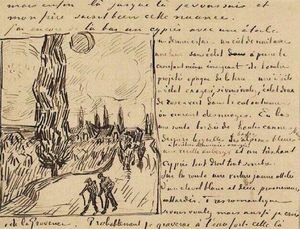 mais enfin là jusque là je vous suis et
mon frère saisit bien cette nuance.
J'ai encore de là bas un cyprès avec une étoile
un dernier essai – un ciel de nuit avec
une lune sans éclat à peine le
croissant mince émergeant de l'ombre
projetée opaque de la terre – une étoile
à éclat exagéré, si vous voulez, éclat doux
de rose & vert dans le ciel outremer
où courent des nuages. En bas
une route bordée de hautes cannes
jaunes derrière lesquelles les basses Alpines bleues
une vieille auberge à fenêtres illuminées orangée et un très haut
cyprès tout droit tout sombre
Sur la route une voiture jaune attelée
d'un cheval blanc et deux promeneurs
attardés. Très romantique
si vous voulez mais aussi je crois
de la Provence. Probablement je graverai à l'eau forte celle là